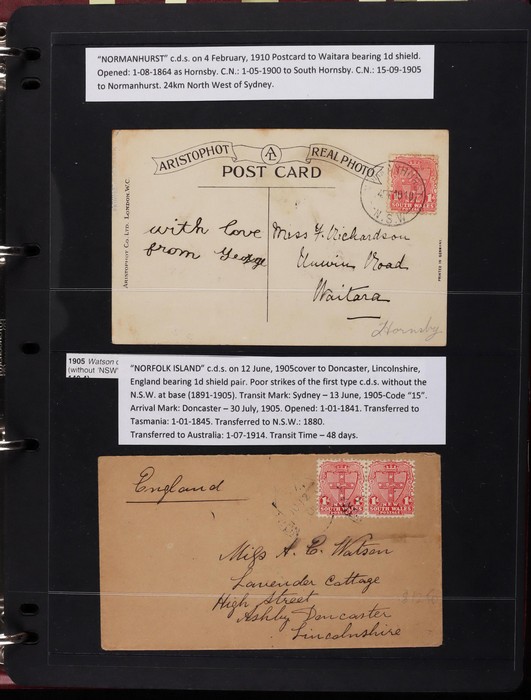 "NORMANHURST" c.d.s. on 4 February, 1910 Postcard to Waitara bearing 1d shield.
Opened: 1-08-1864 as Hornsby. C.N.: 1-05-1900 to South Hornsby. C.N.: 15-09-1905
to Normanhurst. 24km North West of Sydney.
ARISTOPHOT
REAL PHOTO
POST CARD
ARISTOPHOT CO. LTD. LONDON. W.C.
N.S.W.
SOUTH WALES
with love
from George
Miss F. Richardson
Unwin Road
Waitara
Hornsby
PRINTED IN GERMANY
1905 Watson
(without 'NSW'
"NORFOLK ISLAND" c.d.s. on 12 June, 1905cover to Doncaster, Lincolnshire,
England bearing 1d shield pair. Poor strikes of the first type c.d.s. without the
N.S.W. at base (1891-1905). Transit Mark: Sydney – 13 June, 1905-Code "15".
Arrival Mark: Doncaster – 30 July, 1905. Opened: 1-01-1841. Transferred to
Tasmania: 1-01-1845. Transferred to N.S.W.: 1880.
Transferred to Australia: 1-07-1914. Transit Time – 48 days.
England
SOUTH WALES
SOUTH WALES
Miss A. C. Watson
Lavender Cottage
High Street
Ashby Doncaster
Lincolnshire